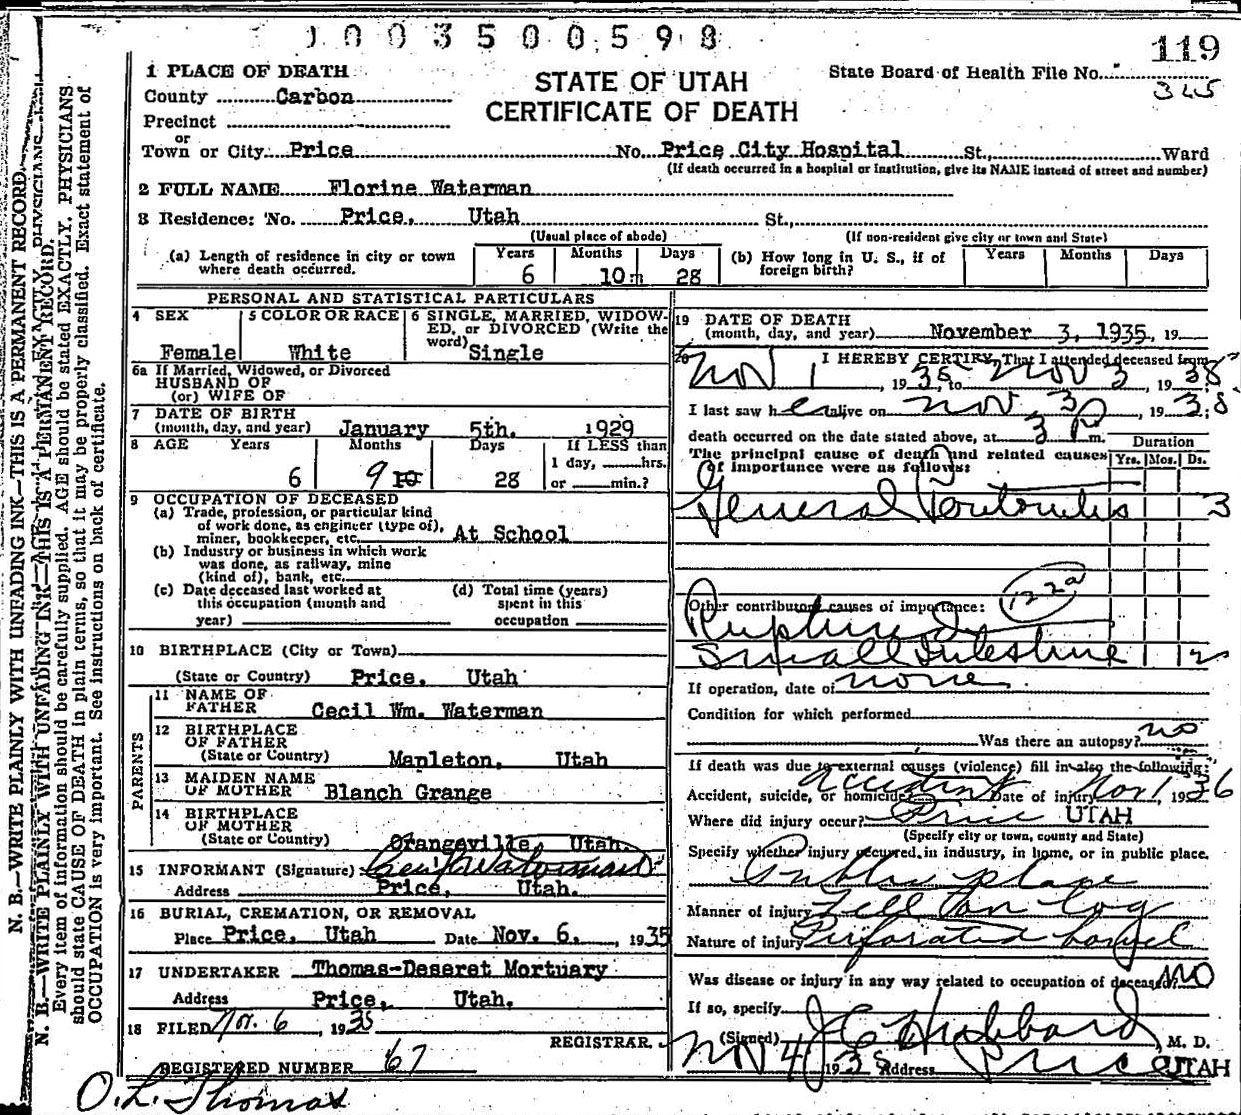 1003500598
119
1 PLACE OF DEATH
STATE OF UTAH
State Board of Health File No.
345
County Carbon
CERTIFICATE OF DEATH
Precinct
or
Town or City Price No. Price City Hospital St., Ward
(If death occurred in a hospital or institution, give its NAME instead of street and number)
2 FULL NAME Florine Waterman
3 Residence: No. Price, Utah St.,
(Usual place of abode) (If non-resident give city or town and State)
(a) Length of residence in city or town where death occurred. Years 6 Months 10m Days 28
(b) How long in U. S., if of foreign birth? Years Months Days
PERSONAL AND STATISTICAL PARTICULARS
4 SEX Female
5 COLOR OR RACE White
6 SINGLE, MARRIED, WIDOWED, or DIVORCED (Write the word) Single
6a If Married, Widowed, or Divorced
HUSBAND OF
(or) WIFE OF
7 DATE OF BIRTH
(month, day, and year) January 5th. 1929
8 AGE Years 6 Months 9 10 Days 28 If LESS than
1 day, hrs.
or min.?
9 OCCUPATION OF DECEASED
(a) Trade, profession, or particular kind
of work done, as engineer (type of),
miner, bookkeeper, etc. At School
(b) Industry or business in which work
was done, as railway, mine
(kind of), bank, etc.
(c) Date deceased last worked at
this occupation (month and
year)
(d) Total time (years)
spent in this
occupation
10 BIRTHPLACE (City or Town)
(State or Country) Price, Utah
PARENTS
11 NAME OF
FATHER Cecil Wm. Waterman
12 BIRTHPLACE
OF FATHER
(State or Country) Mapleton, Utah
13 MAIDEN NAME
OF MOTHER Blanch Grange
14 BIRTHPLACE
OF MOTHER
(State or Country) Orangeville, Utah.
15 INFORMANT (Signature) Cecil Waterman
Address Price, Utah.
16 BURIAL, CREMATION, OR REMOVAL
Place Price, Utah Date Nov. 6, 1935
17 UNDERTAKER Thomas-Deseret Mortuary
Address Price, Utah.
18 FILED Nov. 6, 1935
REGISTRAR.
REGISTERED NUMBER 67
O. L. Thomas
19 DATE OF DEATH
(month, day, and year) November 3, 1935, 19
20 I HEREBY CERTIFY, That I attended deceased from
Nov 1, 1935 to Nov 3, 1935
I last saw her alive on Nov 3, 1935;
death occurred on the date stated above, at 3 P m.
The principal cause of death and related causes
of importance were as follows:
Duration
Yrs. Mos. Ds.
General Peritonitis 3
Other contributory causes of importance:
122a
Ruptured
Small Intestine 2
If operation, date of none
Condition for which performed
Was there an autopsy? no
If death was due to external causes (violence) fill in also the following:
Accident, suicide, or homicide? accident Date of injury Nov 1, 1936
Where did injury occur? Price UTAH
(Specify city or town, county and State)
Specify whether injury occurred in industry, in home, or in public place.
Public place
Manner of injury Fell on log
Nature of injury Perforated bowel
Was disease or injury in any way related to occupation of deceased? NO
If so, specify
(Signed) J C Hubbard, M. D.
Nov 4, 1935 Address Price UTAH
N. B.—WRITE PLAINLY WITH UNFADING INK—THIS IS A PERMANENT RECORD.
N. B.—WRITE PLAINLY WITH UNFADING INK—THIS IS A PERMANENT RECORD.
Every item of information should be carefully supplied. AGE should be stated EXACTLY. PHYSICIANS
should state CAUSE OF DEATH in plain terms, so that it may be properly classified. Exact statement of
OCCUPATION is very important. See instructions on back of certificate.